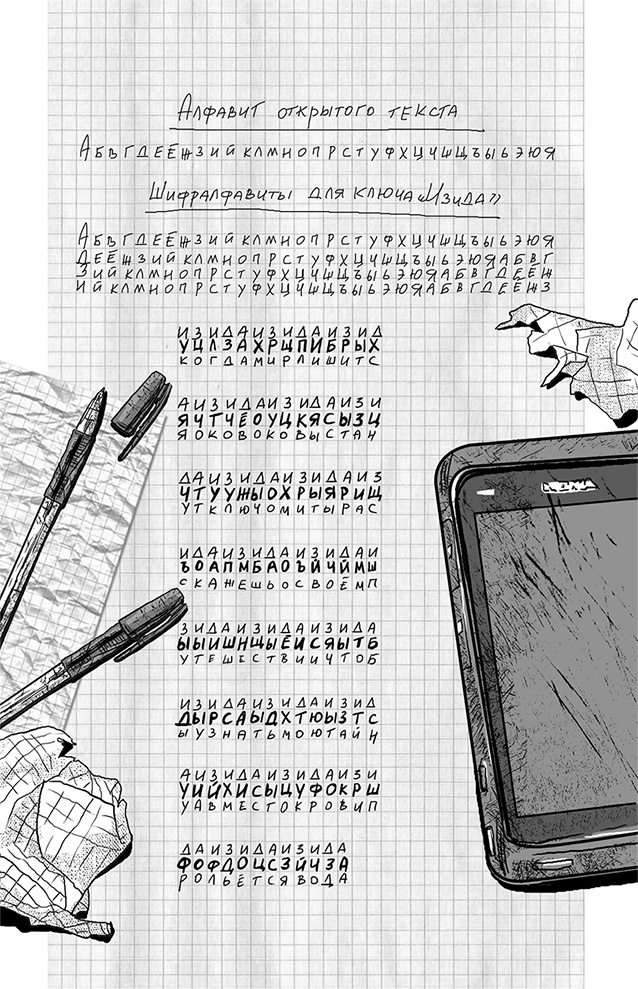 Алфавит открытого текста
АБВГДЕЁЖЗИЙКЛМНОПРСТУФХЦЧШЩЪЫЬЭЮЯ
Шифралфавиты для ключа «Изида»
АБВГДЕЁЖЗИЙКЛМНОПРСТУФХЦЧШЩЪЫЬЭЮЯ
ДЕЁЖЗИЙКЛМНОПРСТУФХЦЧШЩЪЫЬЭЮЯАБВГ
ЗИЙКЛМНОПРСТУФХЦЧШЩЪЫЬЭЮЯАБВГДЕЁЖ
ИЙКЛМНОПРСТУФХЦЧШЩЪЫЬЭЮЯАБВГДЕЁЖЗ
ИЗИДАИЗИДАИЗИД
УЦЛЗАХРЩПИБРЫХ
КОГДАМИРЛИШИТС
АИЗИДАИЗИДАИЗИ
ЯЧТЧЁОУЦКЯСЫЗЦ
ЯОКОВОКОВЫСТАН
ДАИЗИДАИЗИДАИЗ
ЧТУУЖЫОХРЫЯРИЩ
УТКЛЮЧОМИТЫРАС
ИДАИЗИДАИЗИДАИ
ЪОАПМБАОЪЙЧЙМШ
СКАЖЕШЬОСВОЁМП
ЗИДАИЗИДАИЗИДА
ЫЫИШНЩЫЁИСЯЫТБ
УТЕШЕСТВИИЧТОБ
ИЗИДАИЗИДАИЗИД
ДЫРСАЫДХТЮЫЗТС
ЫУЗНАТЬМОЮТАЙН
АИЗИДАИЗИДАИЗИ
УИЙХИСЫЦУФОКРШ
УАВМЕСТОКРОВИП
ДАИЗИДАИЗИДА
ФОФДОЦСЗЙЧЗА
РОЛЬЁТСЯВОДА